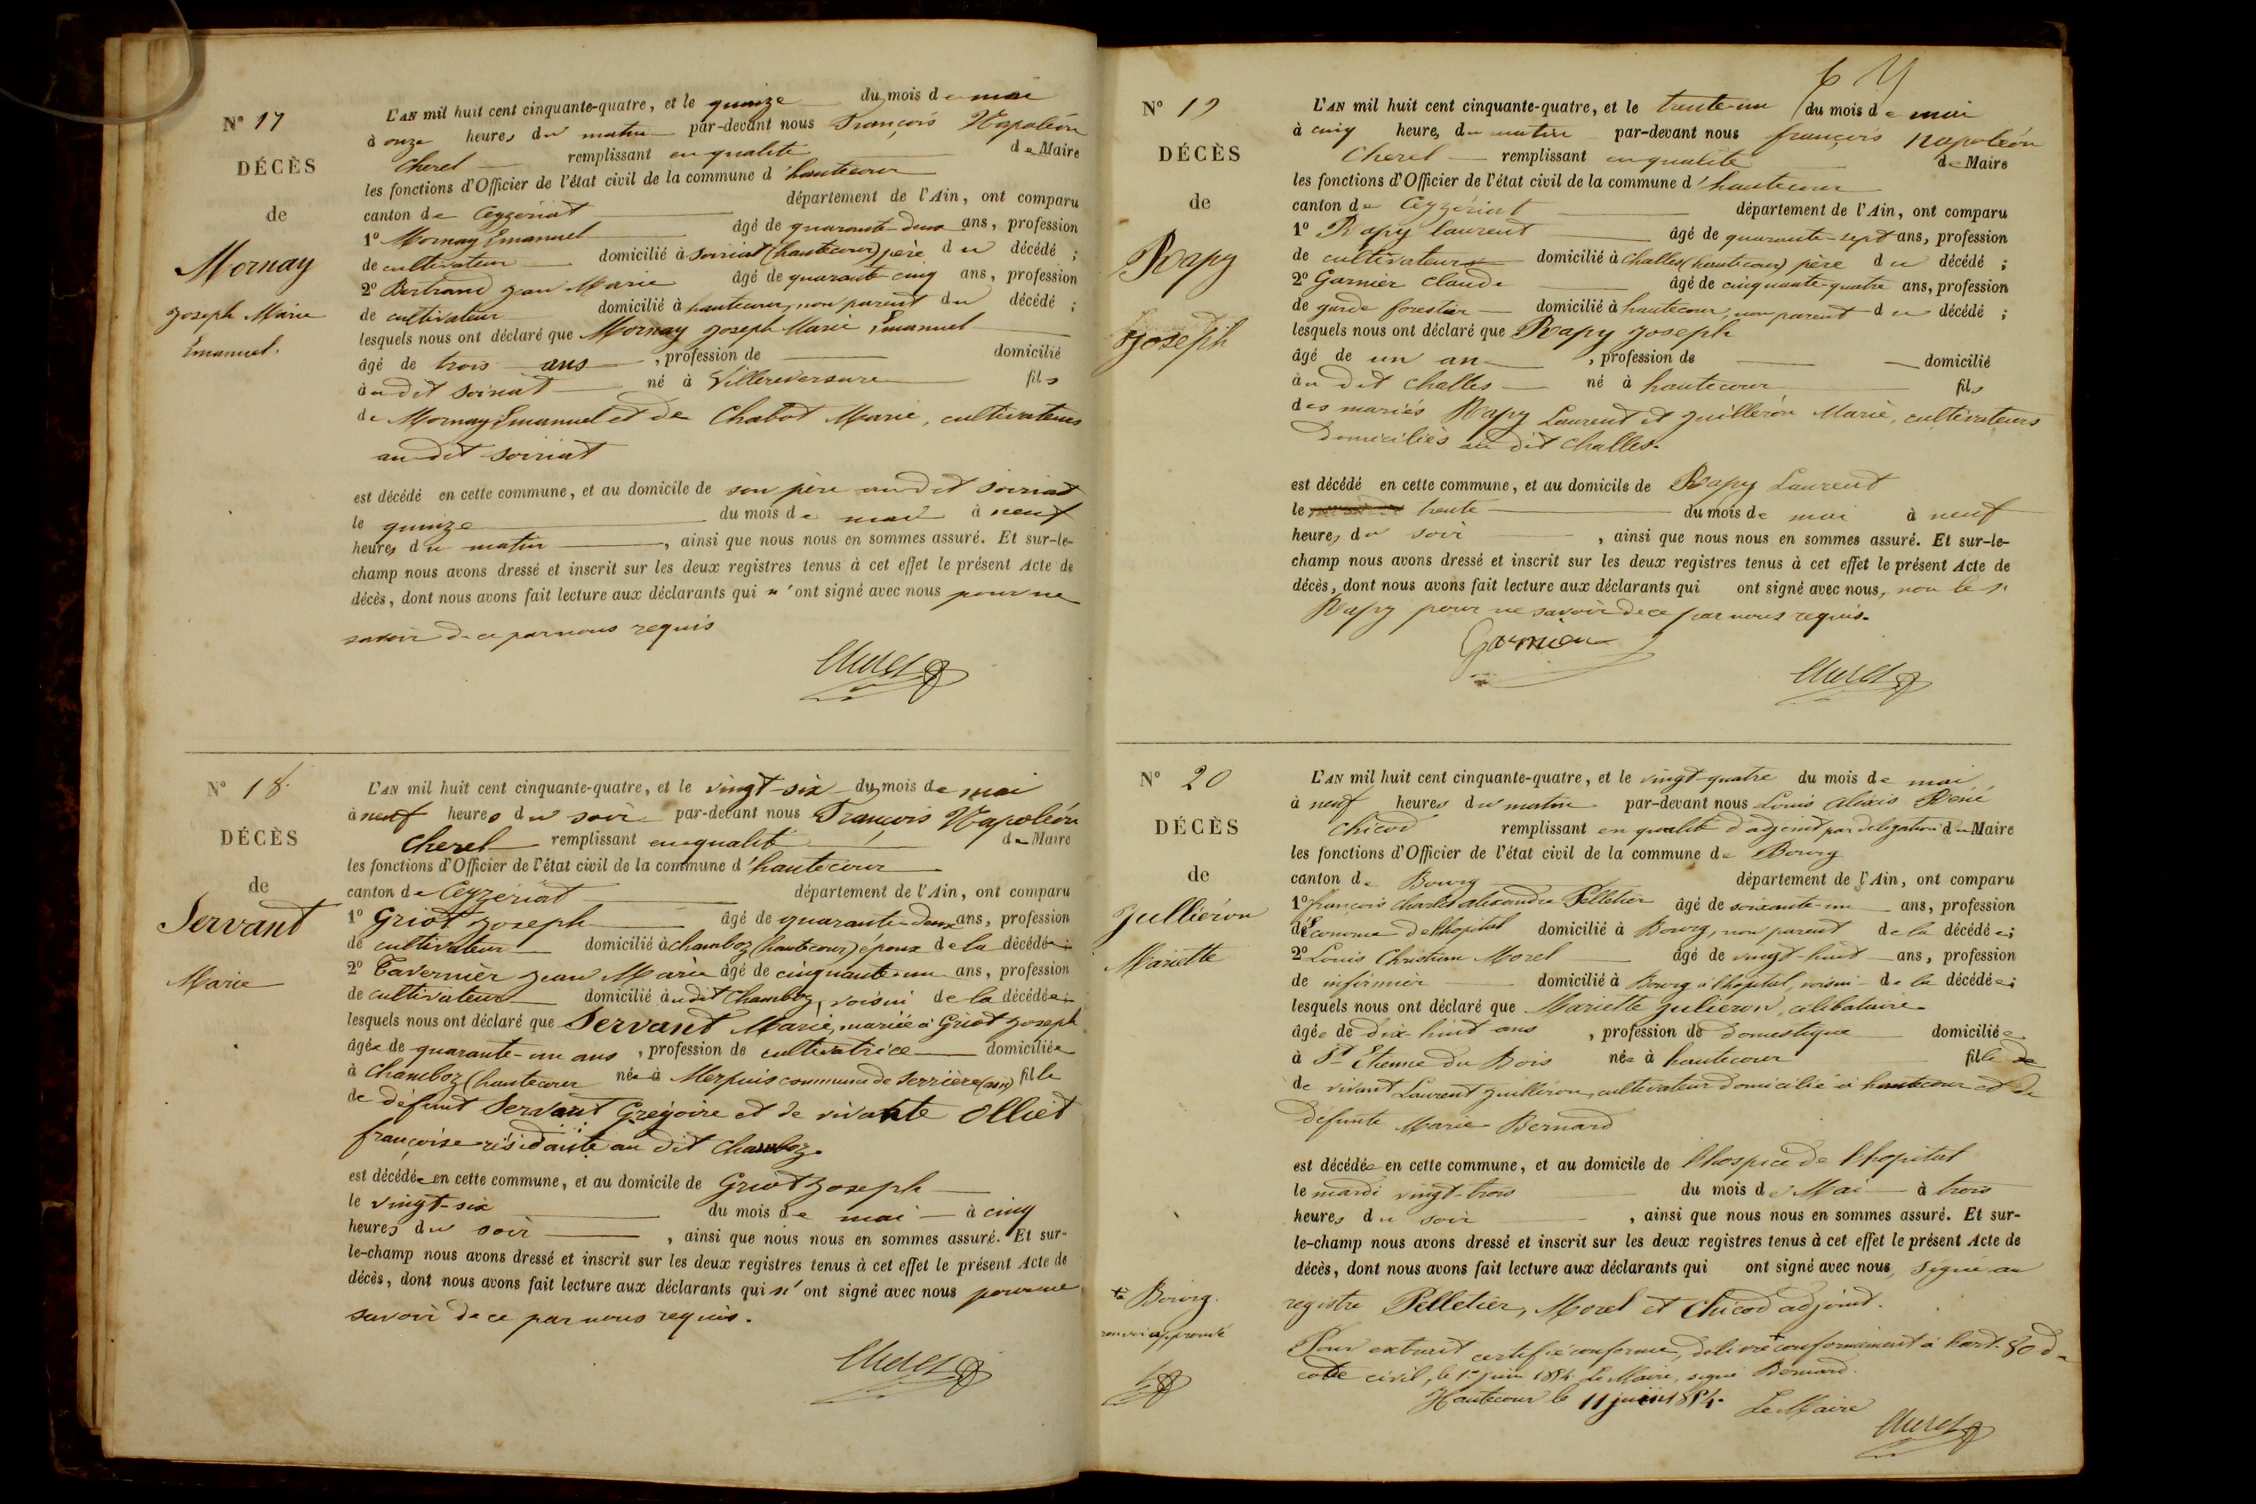 Nº 17
DÉCÈS
de
Mornay
Joseph Marie
Emanuel.
L'AN mil huit cent cinquante-quatre, et le quinze du mois de mai
à onze heures du matin par-devant nous François Napoléon
Cherel remplissant en qualité de Maire
les fonctions d'Officier de l'état civil de la commune d'hautecour
canton de Ceyzériat département de l'Ain, ont comparu
1º Mornay Emanuel âgé de quarante-deux ans, profession
de cultivateur domicilié à Soiriat (hautecour) père du décédé ;
2º Bertrand Jean Marie âgé de quarante-cinq ans, profession
de cultivateur domicilié à hautecour, non parent du décédé ;
lesquels nous ont déclaré que Mornay Joseph Marie Emanuel
âgé de trois ans , profession de domicilié
au dit Soiriat né à Villereversure fils
de Mornay Emanuel et de Chabot Marie, cultivateurs
au dit Soiriat
est décédé en cette commune, et au domicile de son père au dit Soiriat
le quinze du mois de mai à neuf
heures du matin , ainsi que nous nous en sommes assuré. Et sur-le-
champ nous avons dressé et inscrit sur les deux registres tenus à cet effet le présent Acte de
décès, dont nous avons fait lecture aux déclarants qui n'ont signé avec nous pour ne
savoir de ce par nous requis
Cherel
Nº 18
DÉCÈS
de
Servant
Marie
L'AN mil huit cent cinquante-quatre, et le vingt-six du mois de mai
à neuf heures du soir par-devant nous François Napoléon
Cherel remplissant en qualité de Maire
les fonctions d'Officier de l'état civil de la commune d'hautecour
canton de Ceyzériat département de l'Ain, ont comparu
1º Griot Joseph âgé de quarante-deux ans, profession
de cultivateur domicilié à chamboz (hautecour) époux de la décédée ;
2º Tavernier Jean Marie âgé de cinquante-un ans, profession
de cultivateur domicilié au dit Chamboz, voisin de la décédée ;
lesquels nous ont déclaré que Servant Marie, mariée à Griot Joseph
âgée de quarante-un ans , profession de cultivatrice domiciliée
à Chamboz (hautecour née à Merpuis commune de Serrière (ain) fille
de défunt Servant Grégoire et de vivante Olliet
françoise résidante au dit Chamboz.
est décédée en cette commune, et au domicile de Griot Joseph
le vingt-six du mois de mai à cinq
heures du soir , ainsi que nous nous en sommes assuré. Et sur-
le-champ nous avons dressé et inscrit sur les deux registres tenus à cet effet le présent Acte de
décès, dont nous avons fait lecture aux déclarants qui n'ont signé avec nous pour ne
savoir de ce par nous requis.
Cherel
Nº 19
DÉCÈS
de
Rapy
Joseph
L'AN mil huit cent cinquante-quatre, et le trente-un du mois de mai
à cinq heures du matin par-devant nous françois Napoléon
Cherel remplissant en qualité de Maire
les fonctions d'Officier de l'état civil de la commune d'hautecour
canton de Ceyzériat département de l'Ain, ont comparu
1º Rapy laurent âgé de quarante-sept ans, profession
de cultivateur domicilié à Challes (hautecour) père du décédé ;
2º Garnier Claude âgé de cinquante-quatre ans, profession
de garde forestier domicilié à hautecour, non parent du décédé ;
lesquels nous ont déclaré que Rapy Joseph
âgé de un an , profession de domicilié
au dit Challes né à hautecour fils
des mariés Rapy Laurent et Juilléron Marie, cultivateurs
domiciliés au dit Challes.
est décédé en cette commune, et au domicile de Rapy Laurent
le trente du mois de mai à neuf
heures du soir , ainsi que nous nous en sommes assuré. Et sur-le-
champ nous avons dressé et inscrit sur les deux registres tenus à cet effet le présent Acte de
décès, dont nous avons fait lecture aux déclarants qui ont signé avec nous, non le sr
Rapy pour ne savoir de ce par nous requis.
Garnier
Cherel
Nº 20
DÉCÈS
de
Jullieron
Mariette
L'AN mil huit cent cinquante-quatre, et le vingt-quatre du mois de mai
à neuf heures du matin par-devant nous Louis Aléxis Réné
Chicod remplissant en qualité d'adjoint par délégation du Maire
les fonctions d'Officier de l'état civil de la commune de Bourg
canton de Bourg département de l'Ain, ont comparu
1º françois Charles alexandre Pelletier âgé de soixante-un ans, profession
d'Econome de l'hopital domicilié à Bourg, non parent de la décédée ;
2º Louis Christian Morel âgé de vingt-huit ans, profession
de infirmier domicilié à Bourg à l'hopital, voisin de la décédée ;
lesquels nous ont déclaré que Mariette Julieron, célibataire
âgée de dix-huit ans , profession de domestique domiciliée
à St Etienne du Bois née à hautecour fille
de vivant Laurent Juilléron, cultivateur domicilié à hautecour et de
défunte Marie Bernard
est décédée en cette commune, et au domicile de l'hospice de l'hopital
le mardi vingt-trois du mois de Mai à trois
heures du soir , ainsi que nous nous en sommes assuré. Et sur-
le-champ nous avons dressé et inscrit sur les deux registres tenus à cet effet le présent Acte de
décès, dont nous avons fait lecture aux déclarants qui ont signé avec nous, signé au
registre Pelletier, Morel et Chicod adjoint.
Pour extrait certifié conforme, délivré conformément à l'art. 80 du
code civil, le 1er juin 1854 Le Maire, signé Bernard.
Hautecour le 11 juin 1854. Le Maire
Cherel
Bourg.
renvoi approuvé